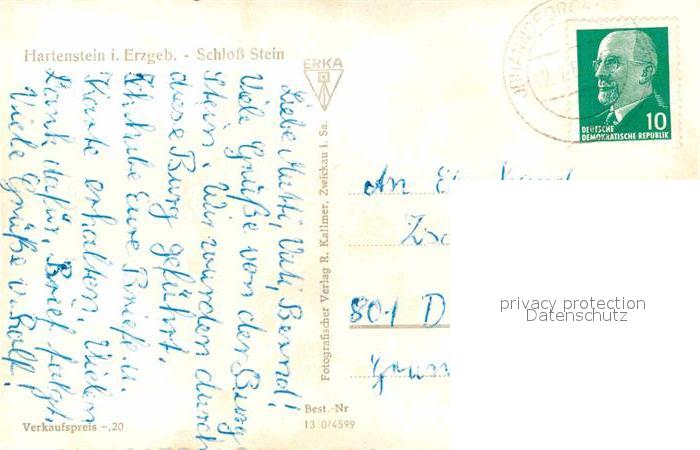 Hartenstein i. Erzgeb. - Schloß Stein
ERKA
Liebe Mutti, Vati, Bernd!
Viele Grüße von der Burg
Stein. Wir wurden durch
diese Burg geführt.
Ich habe Eure Briefe u.
Karte erhalten. Vielen
Dank dafür, Brief folgt.
Viele Grüße v. Rolf!
Verkaufspreis -,20
Fotografischer Verlag R. Kallmer, Zwickau i. Sa.
Best.-Nr
13 0/4599
10
DEUTSCHE
DEMOKRATISCHE REPUBLIK
An
801 D
privacy protection
Datenschutz